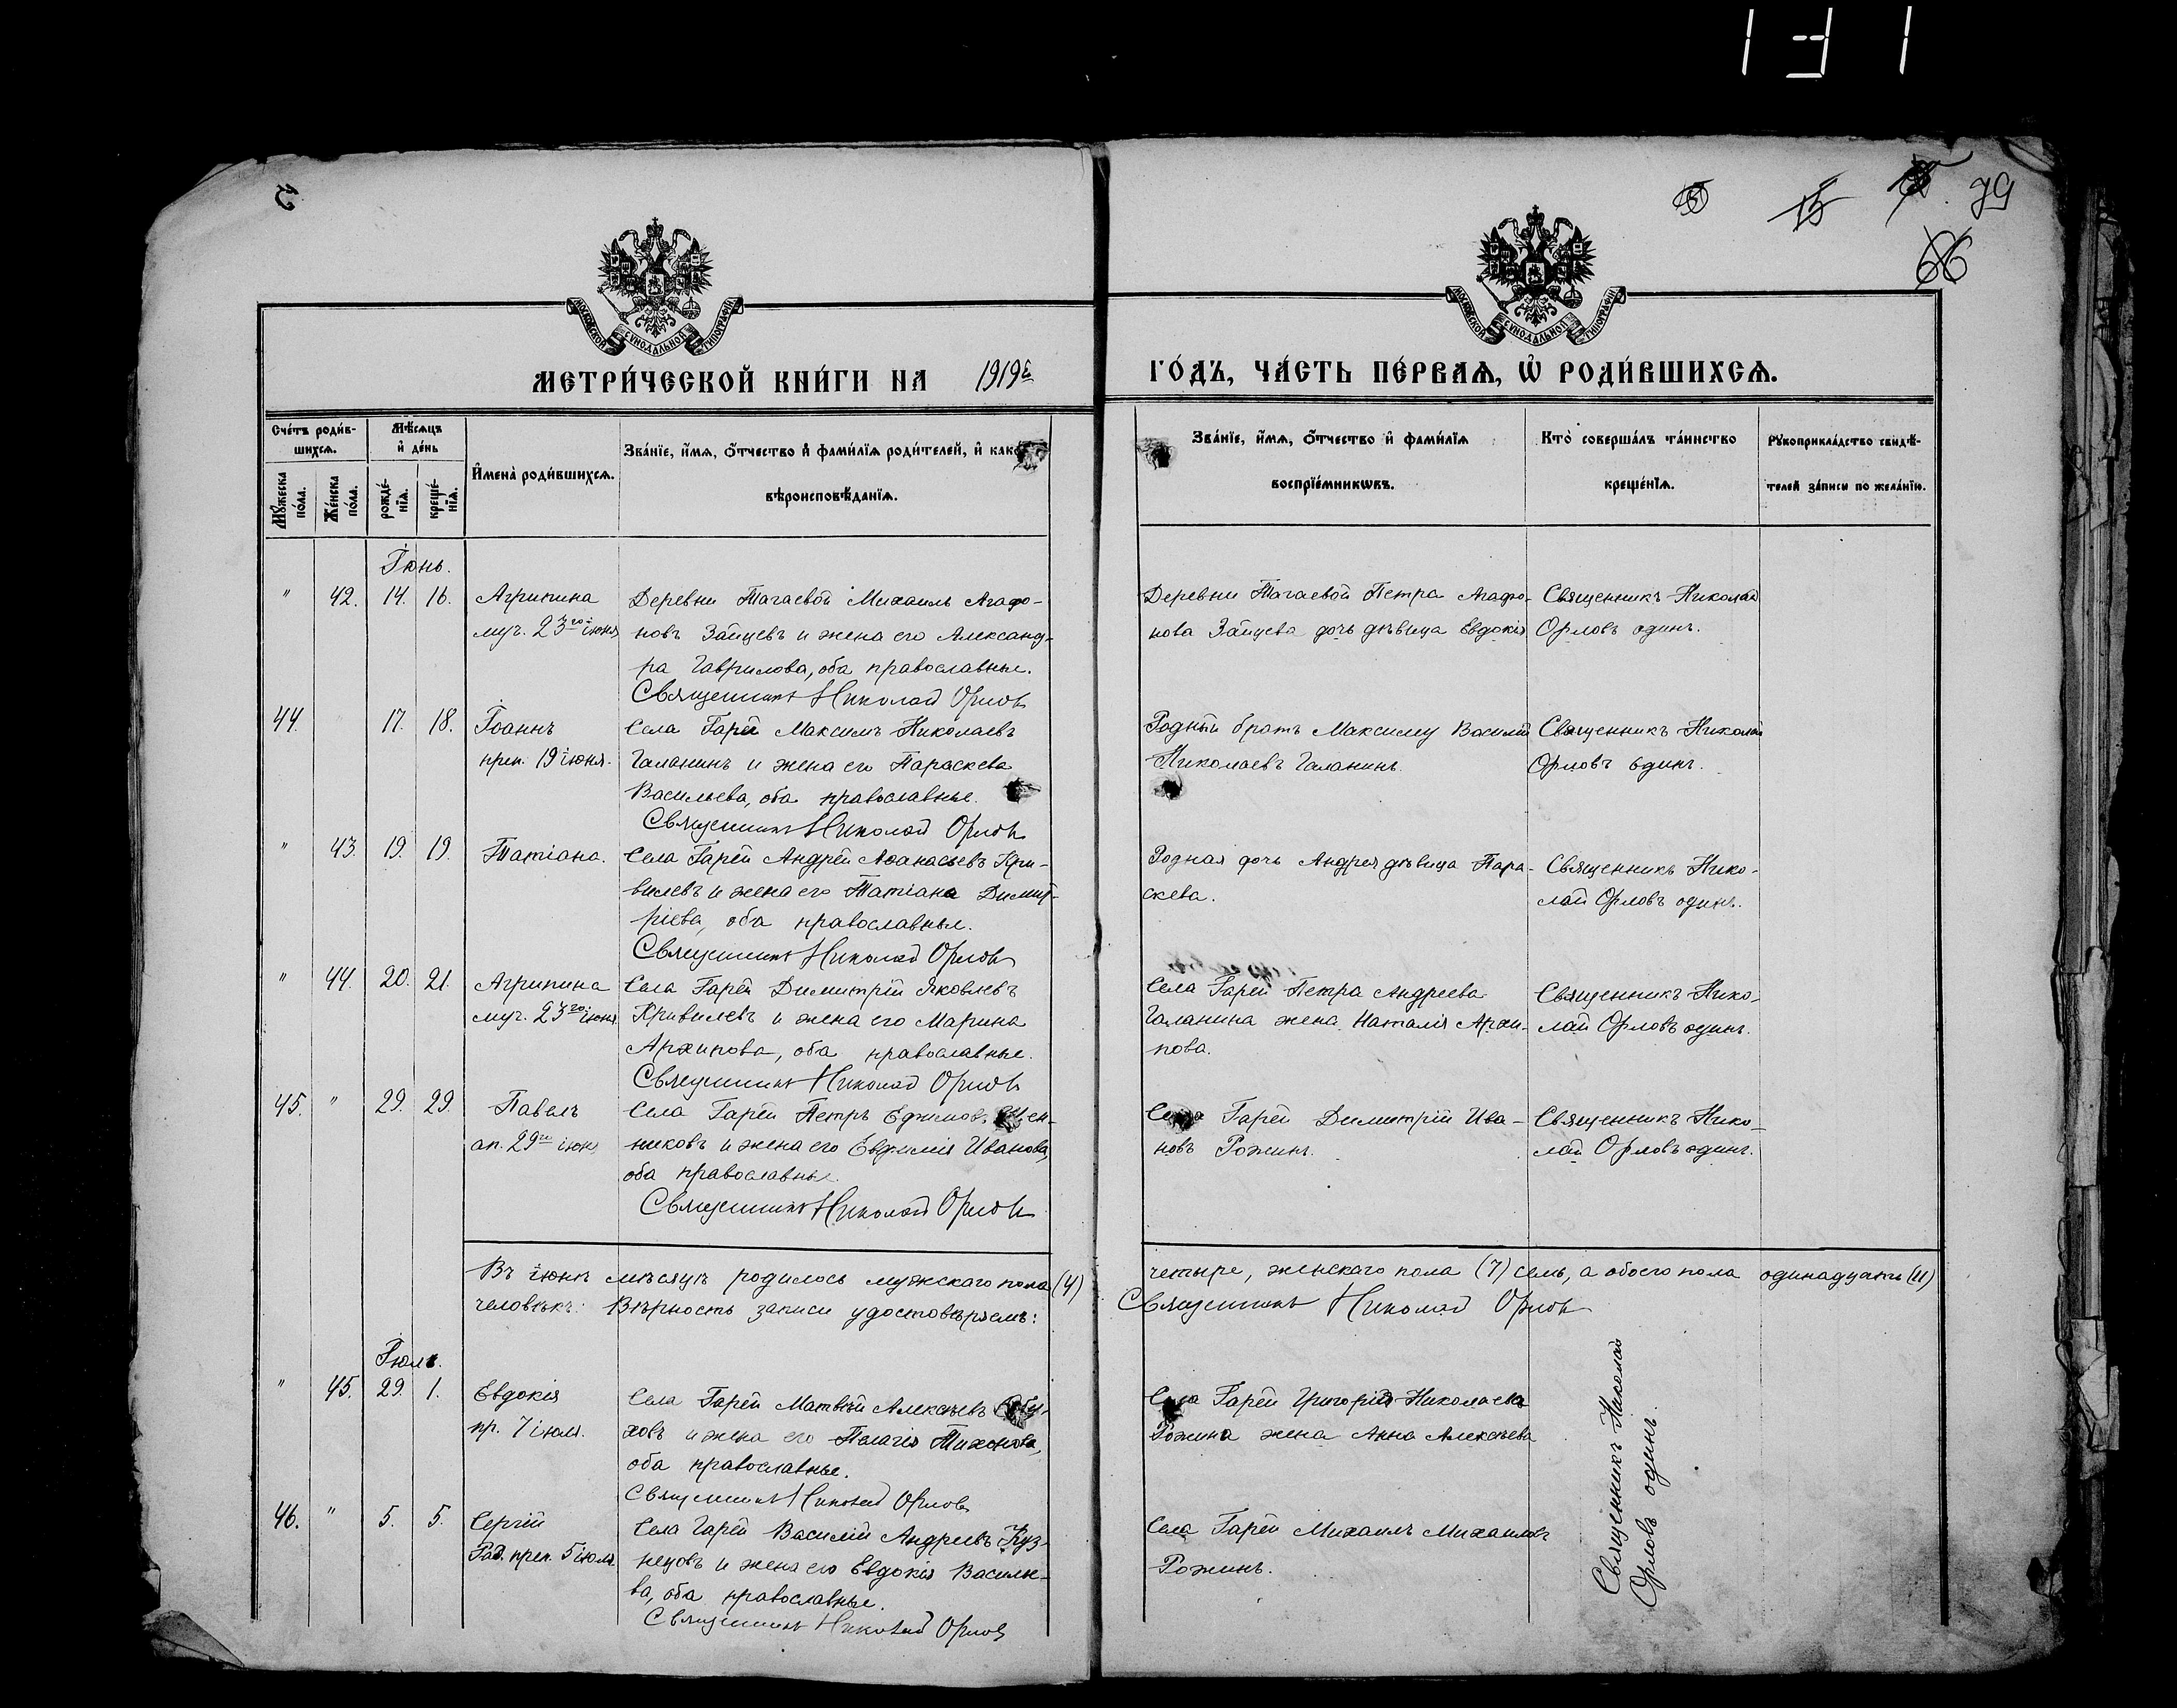 131
79
66
МОСКОВСКОЙ СѴНОДАЛЬНОЙ ТИПОГРАФІИ
МОСКОВСКОЙ СѴНОДАЛЬНОЙ ТИПОГРАФІИ
МЕТРИ́ЧЕСКОЙ КНИ́ГИ НА 1919й ГО́ДЪ, ЧА́СТЬ ПЕ́РВАѦ, Ѡ҆ РОДИ́ВШИХСѦ.
Сче́тъ роди́в-
шихсѧ.
Мꙋ́жеска по́ла.
Же́нска по́ла.
Мѣ́сѧцъ и҆ де́нь
рожде́-нїѧ.
креще́-нїѧ.
И҆мена̀ роди́вшихсѧ.
Зва́нїе, и҆́мѧ, ѻ҆́тчество и҆ фами́лїѧ роди́телей, и҆ како
вѣроисповѣ́данїѧ.
Зва́нїе, и҆́мѧ, ѻ҆́тчество и҆ фами́лїѧ
воспрїе́мникѡвъ.
Кто̀ соверша́лъ та́инство
креще́нїѧ.
Рꙋкоприкла́дство свидѣ́-
телей за́писи по жела́нїю.
Іюнь.
" 42. 14. 16. Агрипина
муч. 23го іюня
Деревни Тагаевой Михаилъ Агафо-
новъ Зайцевъ и жена его Александ-
ра Гаврилова, оба православные.
Священникъ Николай Орловъ
Деревни Тагаевой Петра Агафо-
нова Зайцева дочь дѣвица Евдокія
Священникъ Николай
Орловъ одинъ.
44. 17. 18. Іоаннъ
преп. 19 іюня.
Села Гарей Максимъ Николаевъ
Галанинъ и жена его Параскева
Васильева, оба православные.
Священникъ Николай Орловъ
Родный братъ Максиму Василій
Николаевъ Галанинъ.
Священникъ Николай
Орловъ одинъ.
" 43. 19. 19. Татіана.
Села Гарей Андрей Аѳанасьевъ Кри-
вилевъ и жена его Татіана Димит-
ріева, оба православные.
Священникъ Николай Орловъ
Родная дочь Андрея дѣвица Пара-
скева.
Священникъ Нико-
лай Орловъ одинъ.
" 44. 20. 21. Агрипина
муч. 23го іюня
Села Гарей Димитрій Яковлевъ
Кривилевъ и жена его Марина
Архипова, оба православные.
Священникъ Николай Орловъ
Села Гарей Петра Андреева
Галанина жена Наталія Архи-
пова.
Священникъ Нико-
лай Орловъ одинъ.
45. " 29. 29. Павелъ
ап. 29го іюня
Села Гарей Петръ Ефимовъ
никовъ и жена его Евфимія Иванова,
оба православные.
Священникъ Николай Орловъ
Села Гарей Димитрій Ива-
новъ Рожинъ.
Священникъ Нико-
лай Орловъ одинъ.
Въ іюнѣ мѣсяцѣ родилось мужскаго пола (4) четыре, женскаго пола (7) семь, а обоего пола одинадцать (11)
человѣкъ. Вѣрность записи удостовѣряемъ: Священникъ Николай Орловъ
Іюль.
" 45. 29. 1. Евдокія
пр. 7 іюля.
Села Гарей Матвѣй Алексѣевъ
ховъ и жена его Пелагія Тихонова,
оба православные.
Священникъ Николай Орловъ
Села Гарей Григорія Николаева
Рожина жена Анна Алексѣева
46. " 5. 5. Сергій
Рад. преп. 5 іюля.
Села Гарей Василій Андреевъ Куз-
нецовъ и жена его Евдокія Василье-
ва, оба православные.
Священникъ Николай Орловъ
Села Гарей Михаилъ Михаиловъ
Рожинъ.
Священникъ Николай
Орловъ одинъ.